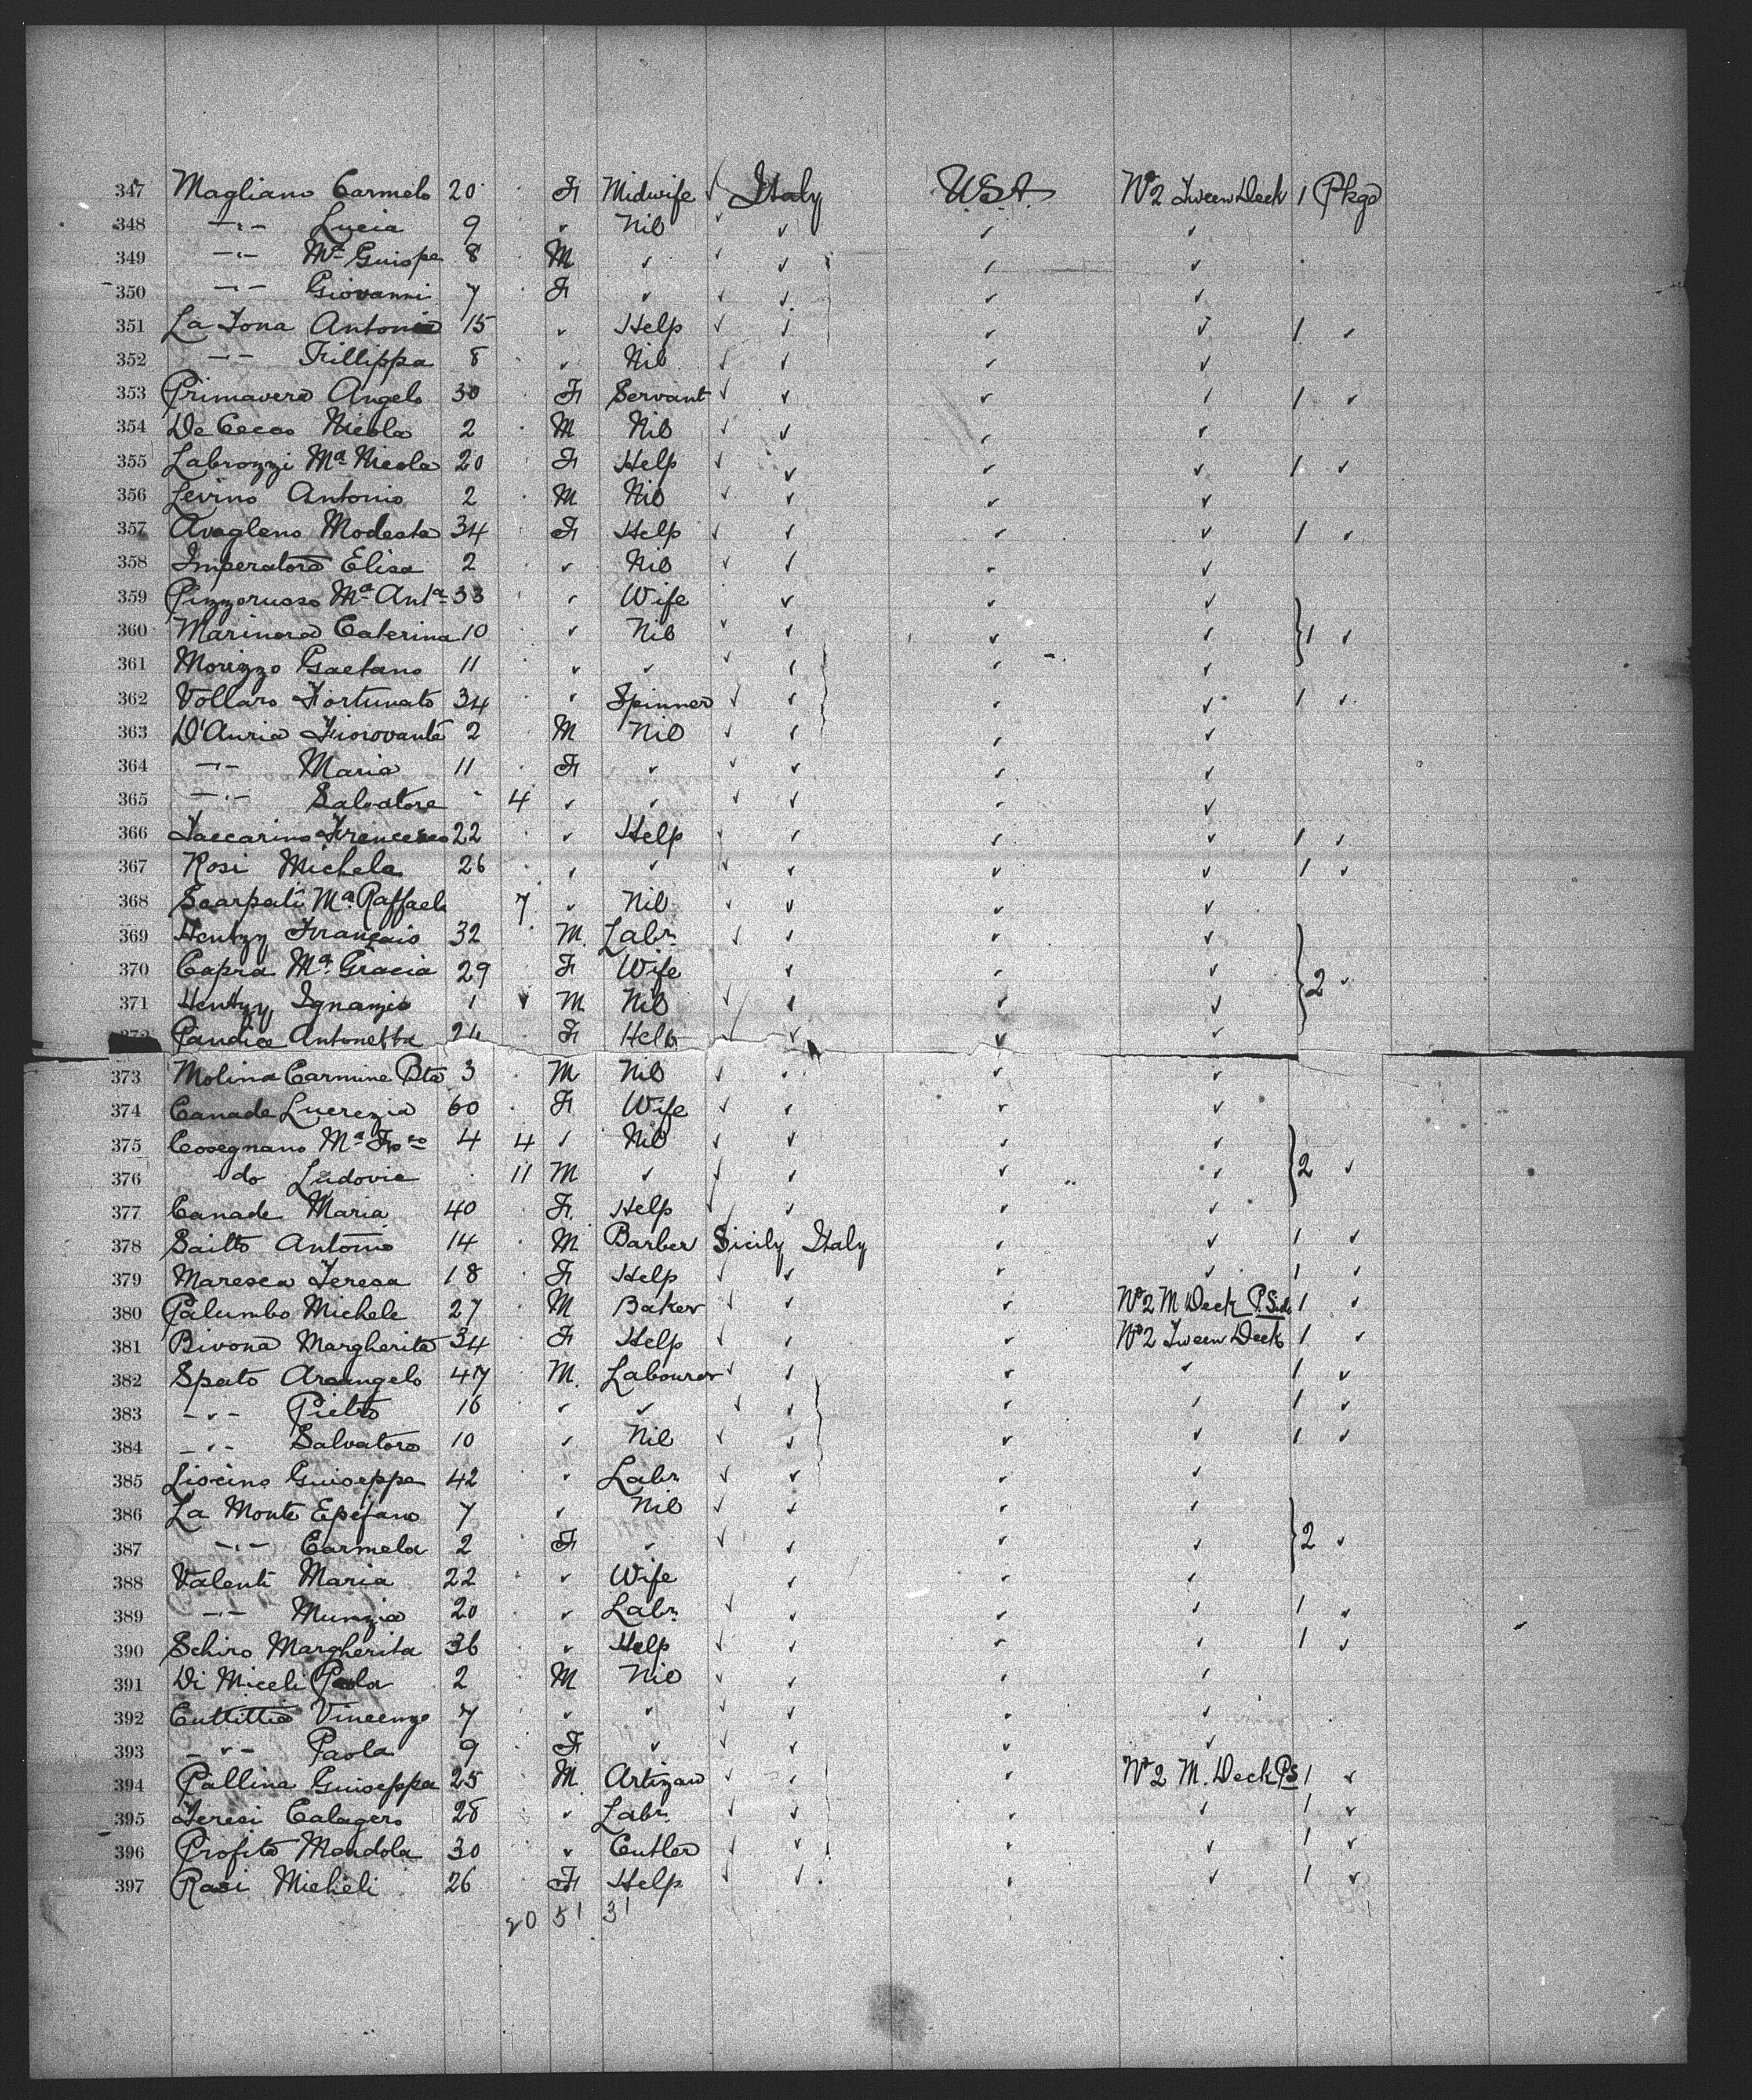 347 Magliano Carmelo 20 F Midwife ✓ Italy U.S.A. No 2 Tween Deck 1 Pkgs
348 -"- Lucia 9 ✓ Nil ✓ ✓ ✓ ✓
349 -"- Ma Guispe 8 M ✓ ✓ ✓ ✓ ✓
350 -"- Giovanni 7 F ✓ ✓ ✓ ✓ ✓
351 La Tona Antonia 15 ✓ Help ✓ ✓ ✓ ✓ 1 ✓
352 -"- Fillippa 8 ✓ Nil ✓ ✓ ✓ ✓
353 Primavera Angelo 30 F Servant ✓ ✓ ✓ ✓ 1 ✓
354 De Cecco Nicola 2 M Nil ✓ ✓ ✓ ✓
355 Labrozzi Ma Nicola 20 F Help ✓ ✓ ✓ ✓ 1 ✓
356 Levino Antonio 2 M Nil ✓ ✓ ✓ ✓
357 Avagleno Modesta 34 F Help ✓ ✓ ✓ ✓ 1 ✓
358 Imperatore Elisa 2 ✓ Nil ✓ ✓ ✓ ✓
359 Pizzorusso Ma Anta 33 ✓ Wife ✓ ✓ ✓
360 Marinora Caterina 10 ✓ Nil ✓ ✓ ✓ ✓ 1 ✓
361 Morizzo Gaetano 11 ✓ ✓ ✓ ✓ ✓ ✓
362 Vollaro Fortunato 34 ✓ Spinner ✓ ✓ ✓ ✓ 1 ✓
363 D'Auria Fiorovante 2 M Nil ✓ ✓ ✓ ✓
364 -"- Maria 11 F ✓ ✓ ✓ ✓ ✓
365 -"- Salvatore 4 ✓ ✓ ✓ ✓ ✓ ✓
366 Iaccarino Francesco 22 ✓ Help ✓ ✓ ✓ ✓ 1 ✓
367 Rosi Michela 26 ✓ ✓ ✓ ✓ ✓ ✓ 1 ✓
368 Scarpati Ma Raffaela 7 ✓ Nil ✓ ✓ ✓ ✓
369 Hentzy Français 32 M. Labr ✓ ✓ ✓ ✓
370 Capra Ma Gracia 29 F Wife ✓ ✓ ✓ 2 ✓
371 Hentzy Ignazio 1 ✓ M Nil ✓ ✓ ✓ ✓
372 Pandice Antonetta 24 F Help ✓ ✓ ✓
373 Molina Carmine Bta 3 M Nil ✓ ✓ ✓ ✓
374 Canade Lucrezia 60 F Wife ✓ ✓ ✓ ✓
375 Cosegnano Ma Frco 4 4 ✓ Nil ✓ ✓ ✓ ✓
376 do Ludovic 11 M ✓ ✓ ✓ ✓ ✓ 2 ✓
377 Canade Maria 40 F. Help ✓ ✓ ✓ ✓
378 Saitto Antonio 14 M Barber Sicily Italy ✓ ✓ 1 ✓
379 Maresca Teresa 18 F Help ✓ ✓ ✓ ✓ 1 ✓
380 Palumbo Michele 27 M Baker ✓ ✓ ✓ No 2 M Deck P. Side 1 ✓
381 Bivona Margherita 34 F Help ✓ ✓ ✓ No 2 Tween Deck 1 ✓
382 Spato Arcangelo 47 M. Labourer ✓ ✓ ✓ ✓ 1 ✓
383 -"- Pietro 16 ✓ ✓ ✓ ✓ ✓ ✓ 1 ✓
384 -"- Salvatore 10 ✓ Nil ✓ ✓ ✓ ✓ 1 ✓
385 Liocino Guiseppe 42 ✓ Labr ✓ ✓ ✓ ✓
386 La Monte Epifano 7 ✓ Nil ✓ ✓ ✓ ✓
387 -"- Carmela 2 F ✓ ✓ ✓ ✓ ✓ 2 ✓
388 Valenti Maria 22 ✓ Wife ✓ ✓ ✓
389 -"- Munzia 20 ✓ Labr ✓ ✓ ✓ ✓ 1 ✓
390 Schiro Margherita 36 ✓ Help ✓ ✓ ✓ ✓ 1 ✓
391 Di Miceli Paola 2 M Nil ✓ ✓ ✓ ✓
392 Cuttitta Vincenzo 7 ✓ ✓ ✓ ✓ ✓ ✓
393 -"- Paola 9 F ✓ ✓ ✓ ✓ ✓
394 Pallina Guiseppa 25 M Artizan ✓ ✓ ✓ No 2 M. Deck PS 1 ✓
395 Teresi Calagero 28 ✓ Labr ✓ ✓ ✓ ✓ 1 ✓
396 Profito Mendola 30 ✓ Cutler ✓ ✓ ✓ ✓ 1 ✓
397 Rasi Micheli 26 F Help ✓ ✓ ✓ ✓ 1 ✓
20 51 31